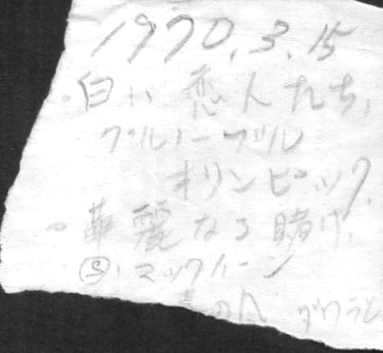 1970.3.15
・白い恋人たち,
グルノーブル
オリンピック.
・華麗なる賭け,
Ⓢ.マックイーン
ダウラ